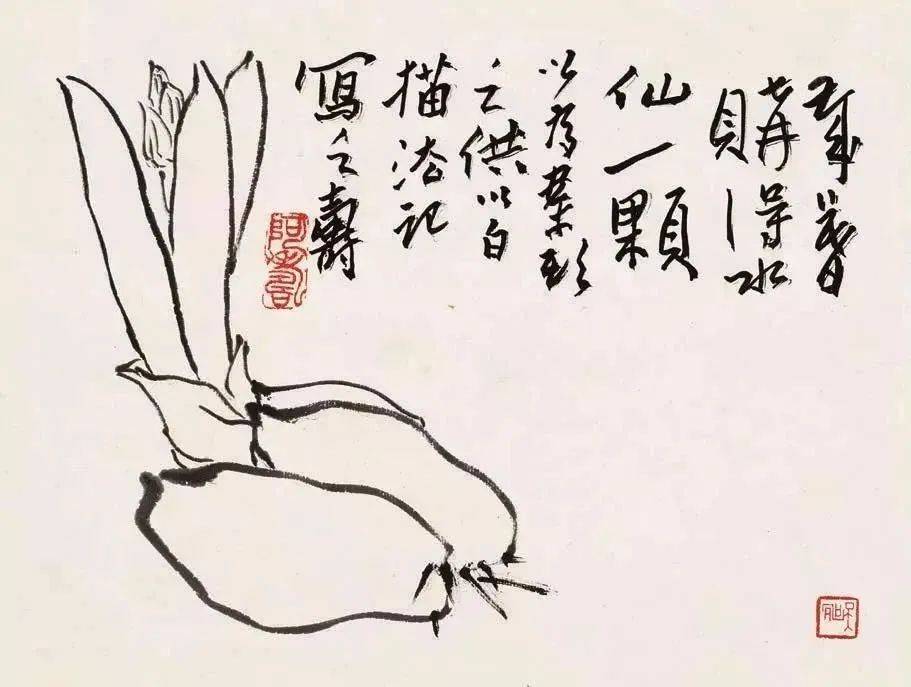 歲暮
購得水
仙一顆
以為案頭
之供以白
描法記
寫之壽
阿壽